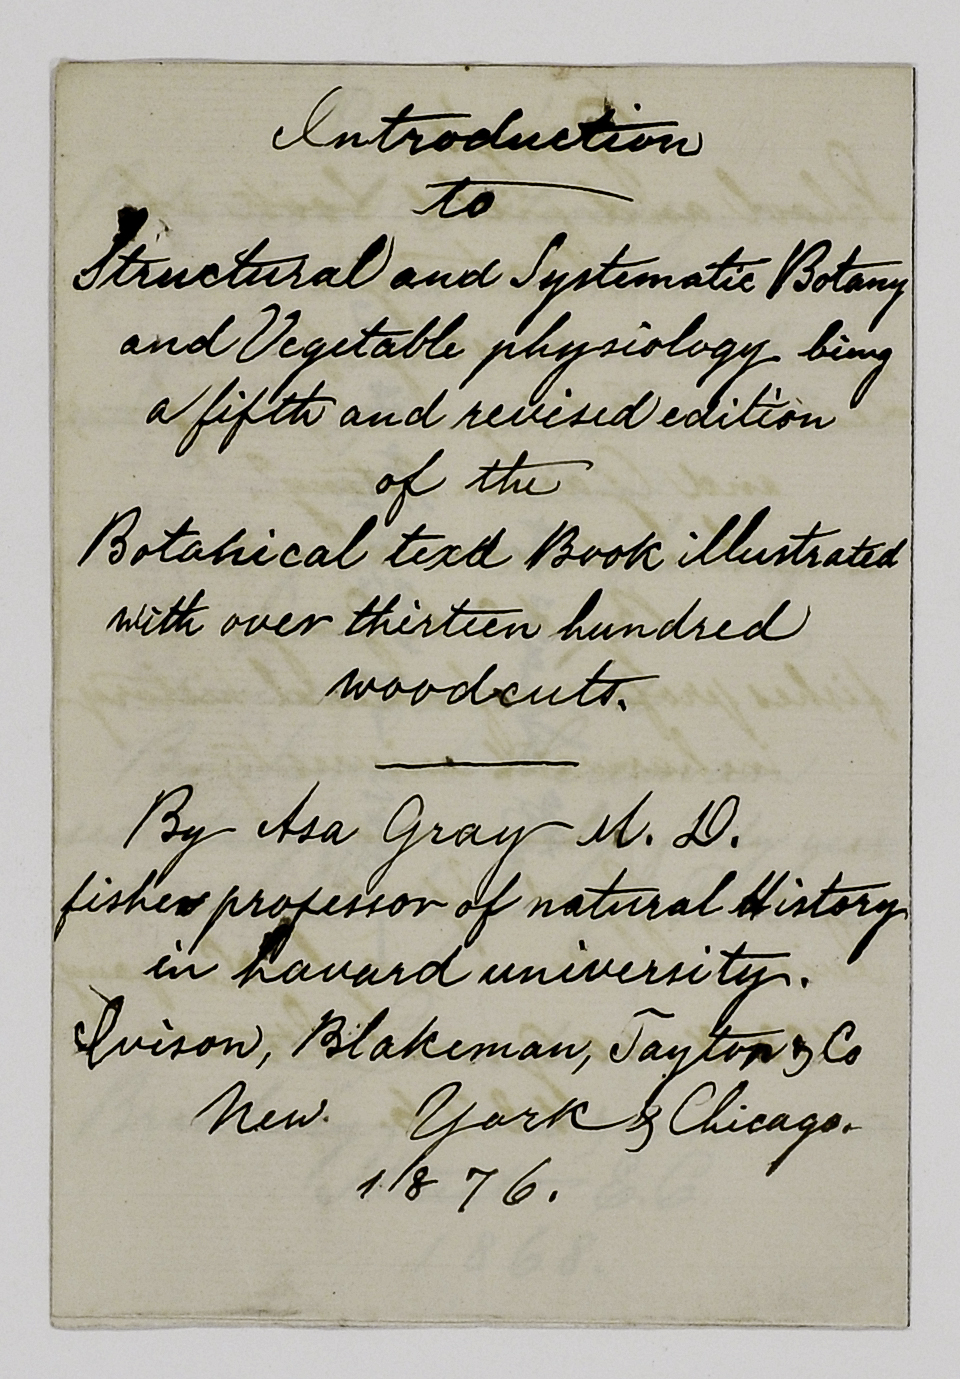 Introduction
to
Structural and Systematic Botany
and Vegetable physiology being
a fifth and revised edition
of the
Botanical text Book illustrated
with over thirteen hundred
woodcuts.
By Asa Gray M. D.
fisher professor of natural History
in havard university.
Ivison, Blakeman, Tayton & Co
New York & Chicago.
1876.